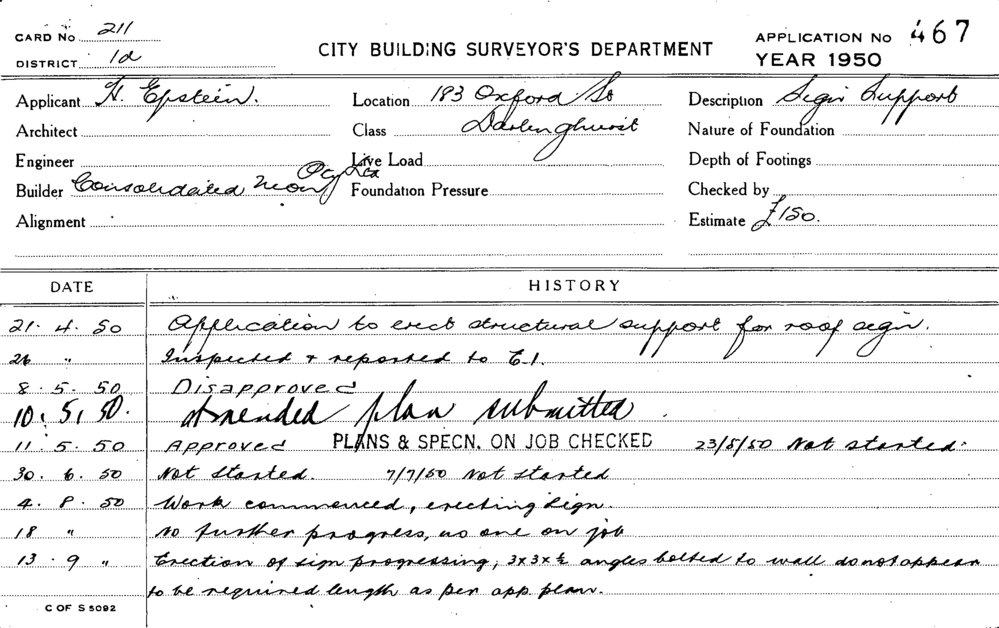 CARD No 211
DISTRICT 1d
CITY BUILDING SURVEYOR'S DEPARTMENT
APPLICATION No 467
YEAR 1950
Applicant H. Epstein. Location 183 Oxford St Description Sign Support
Architect Class Darlinghurst Nature of Foundation
Engineer Live Load Depth of Footings
Builder Consolidated Neon Pty Ltd Foundation Pressure Checked by
Alignment Estimate £150.
DATE HISTORY
21. 4. 50 Application to erect structural support for roof sign.
26 " Inspected & reported to E.I.
8. 5. 50 Disapproved
10. 5. 50. Amended plan submitted.
11. 5. 50 Approved PLANS & SPECN. ON JOB CHECKED 23/5/50 Not started.
30. 6. 50 Not Started. 7/7/50 Not started
4. 8. 50 Work commenced, erecting sign.
18 " No further progress, no one on job
13. 9 " Erection of sign progressing, 3x3x¼ angles bolted to wall do not appear
to be required length as per app. plan.
C OF S 5092